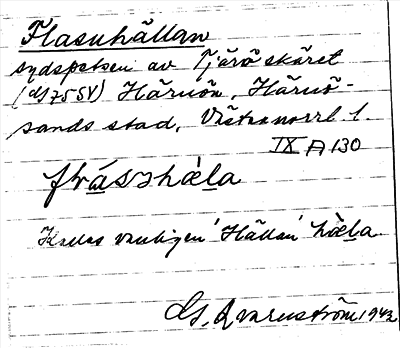 Flasuhällan
sydspetsen av Tjäröskäret
(G75SV) Härnön, Härnö-
sands stad, Västernorrl. l.
IX A 130
Kallas vanligen 'Hällan' hὲla
G. Qvarnström 1942